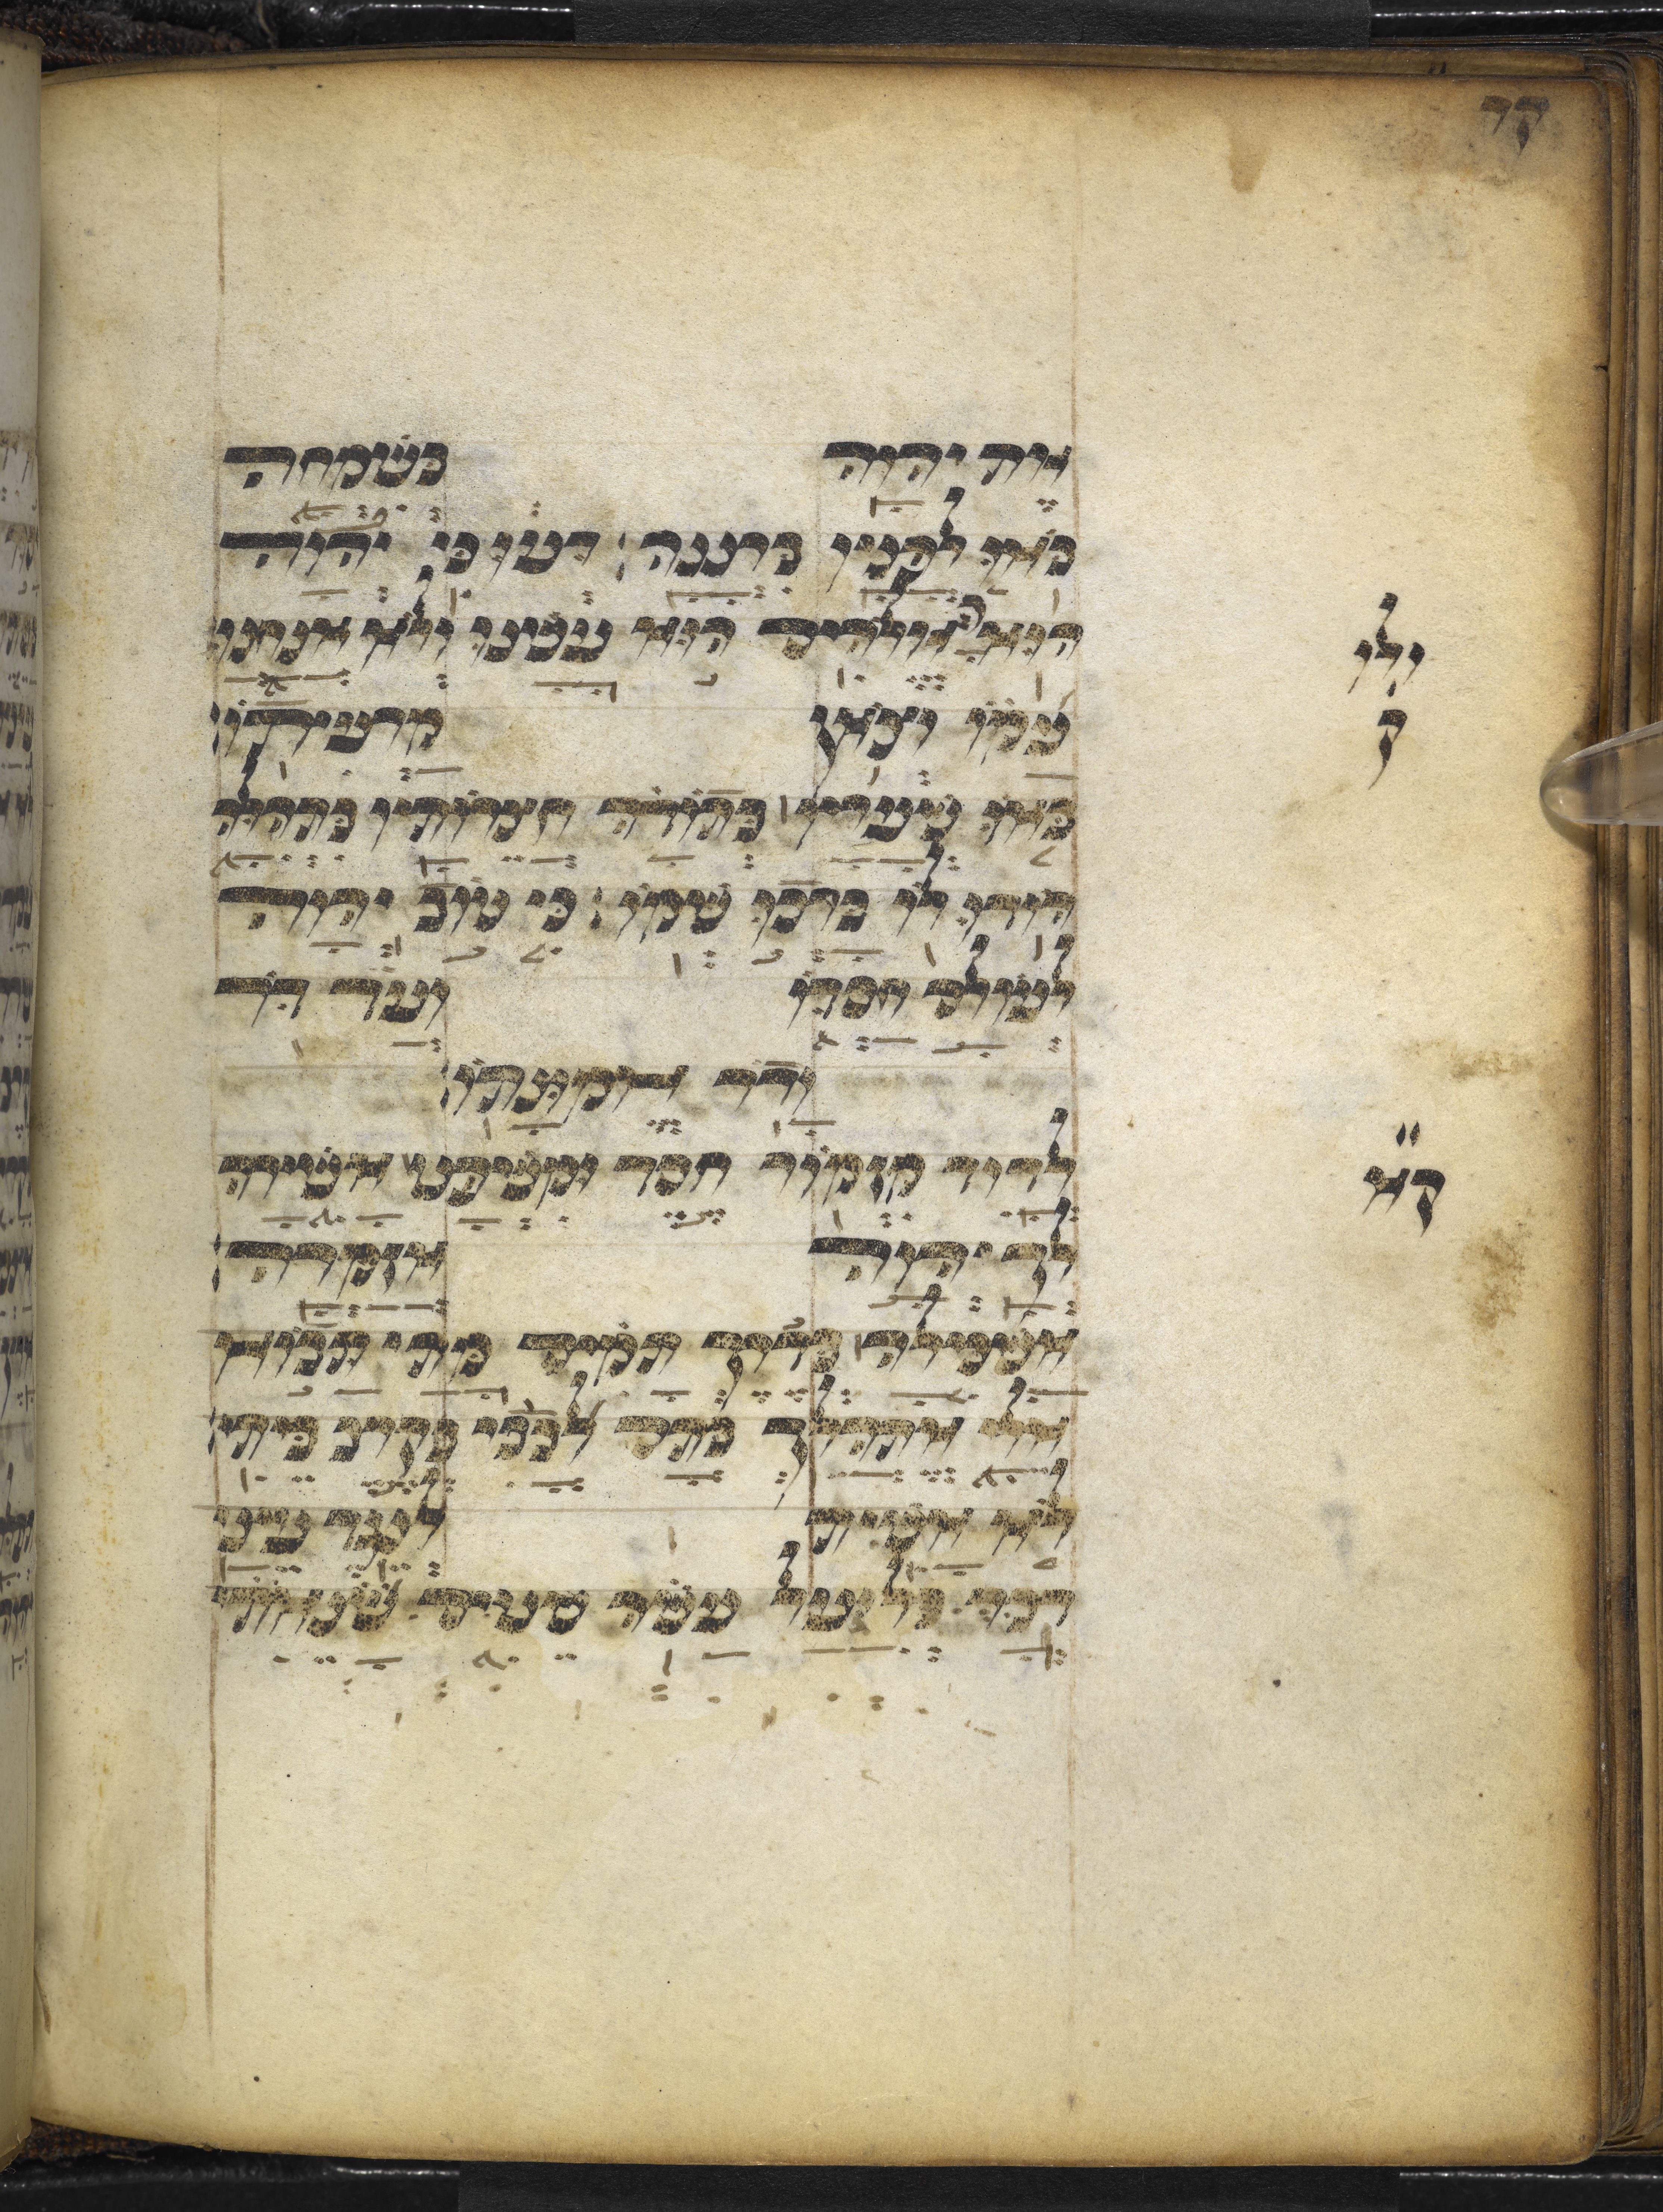 קד
את יהוה בשמחה
באו לפניו ברננה דעו כי יהוה
הוא אלהים הוא עשנו ולא אנחנו
ולו
ק
עמו וצאן מרעיתו
באו שעריו בתודה חצרותיו בתהלה
הודו לו ברכו שמו כי טוב יהוה
לעולם חסדו ועד דר
ודר אמונתו
לדוד מזמור חסד ומשפט אשירה
קא
לך יהוה אזמרה
אשכילה בדרך תמים מתי תבוא
אלי אתהלך בתם לבבי בקרב ביתי
לא אשית לנגד עיני
דבר בליעל עשה סטים שנאתי